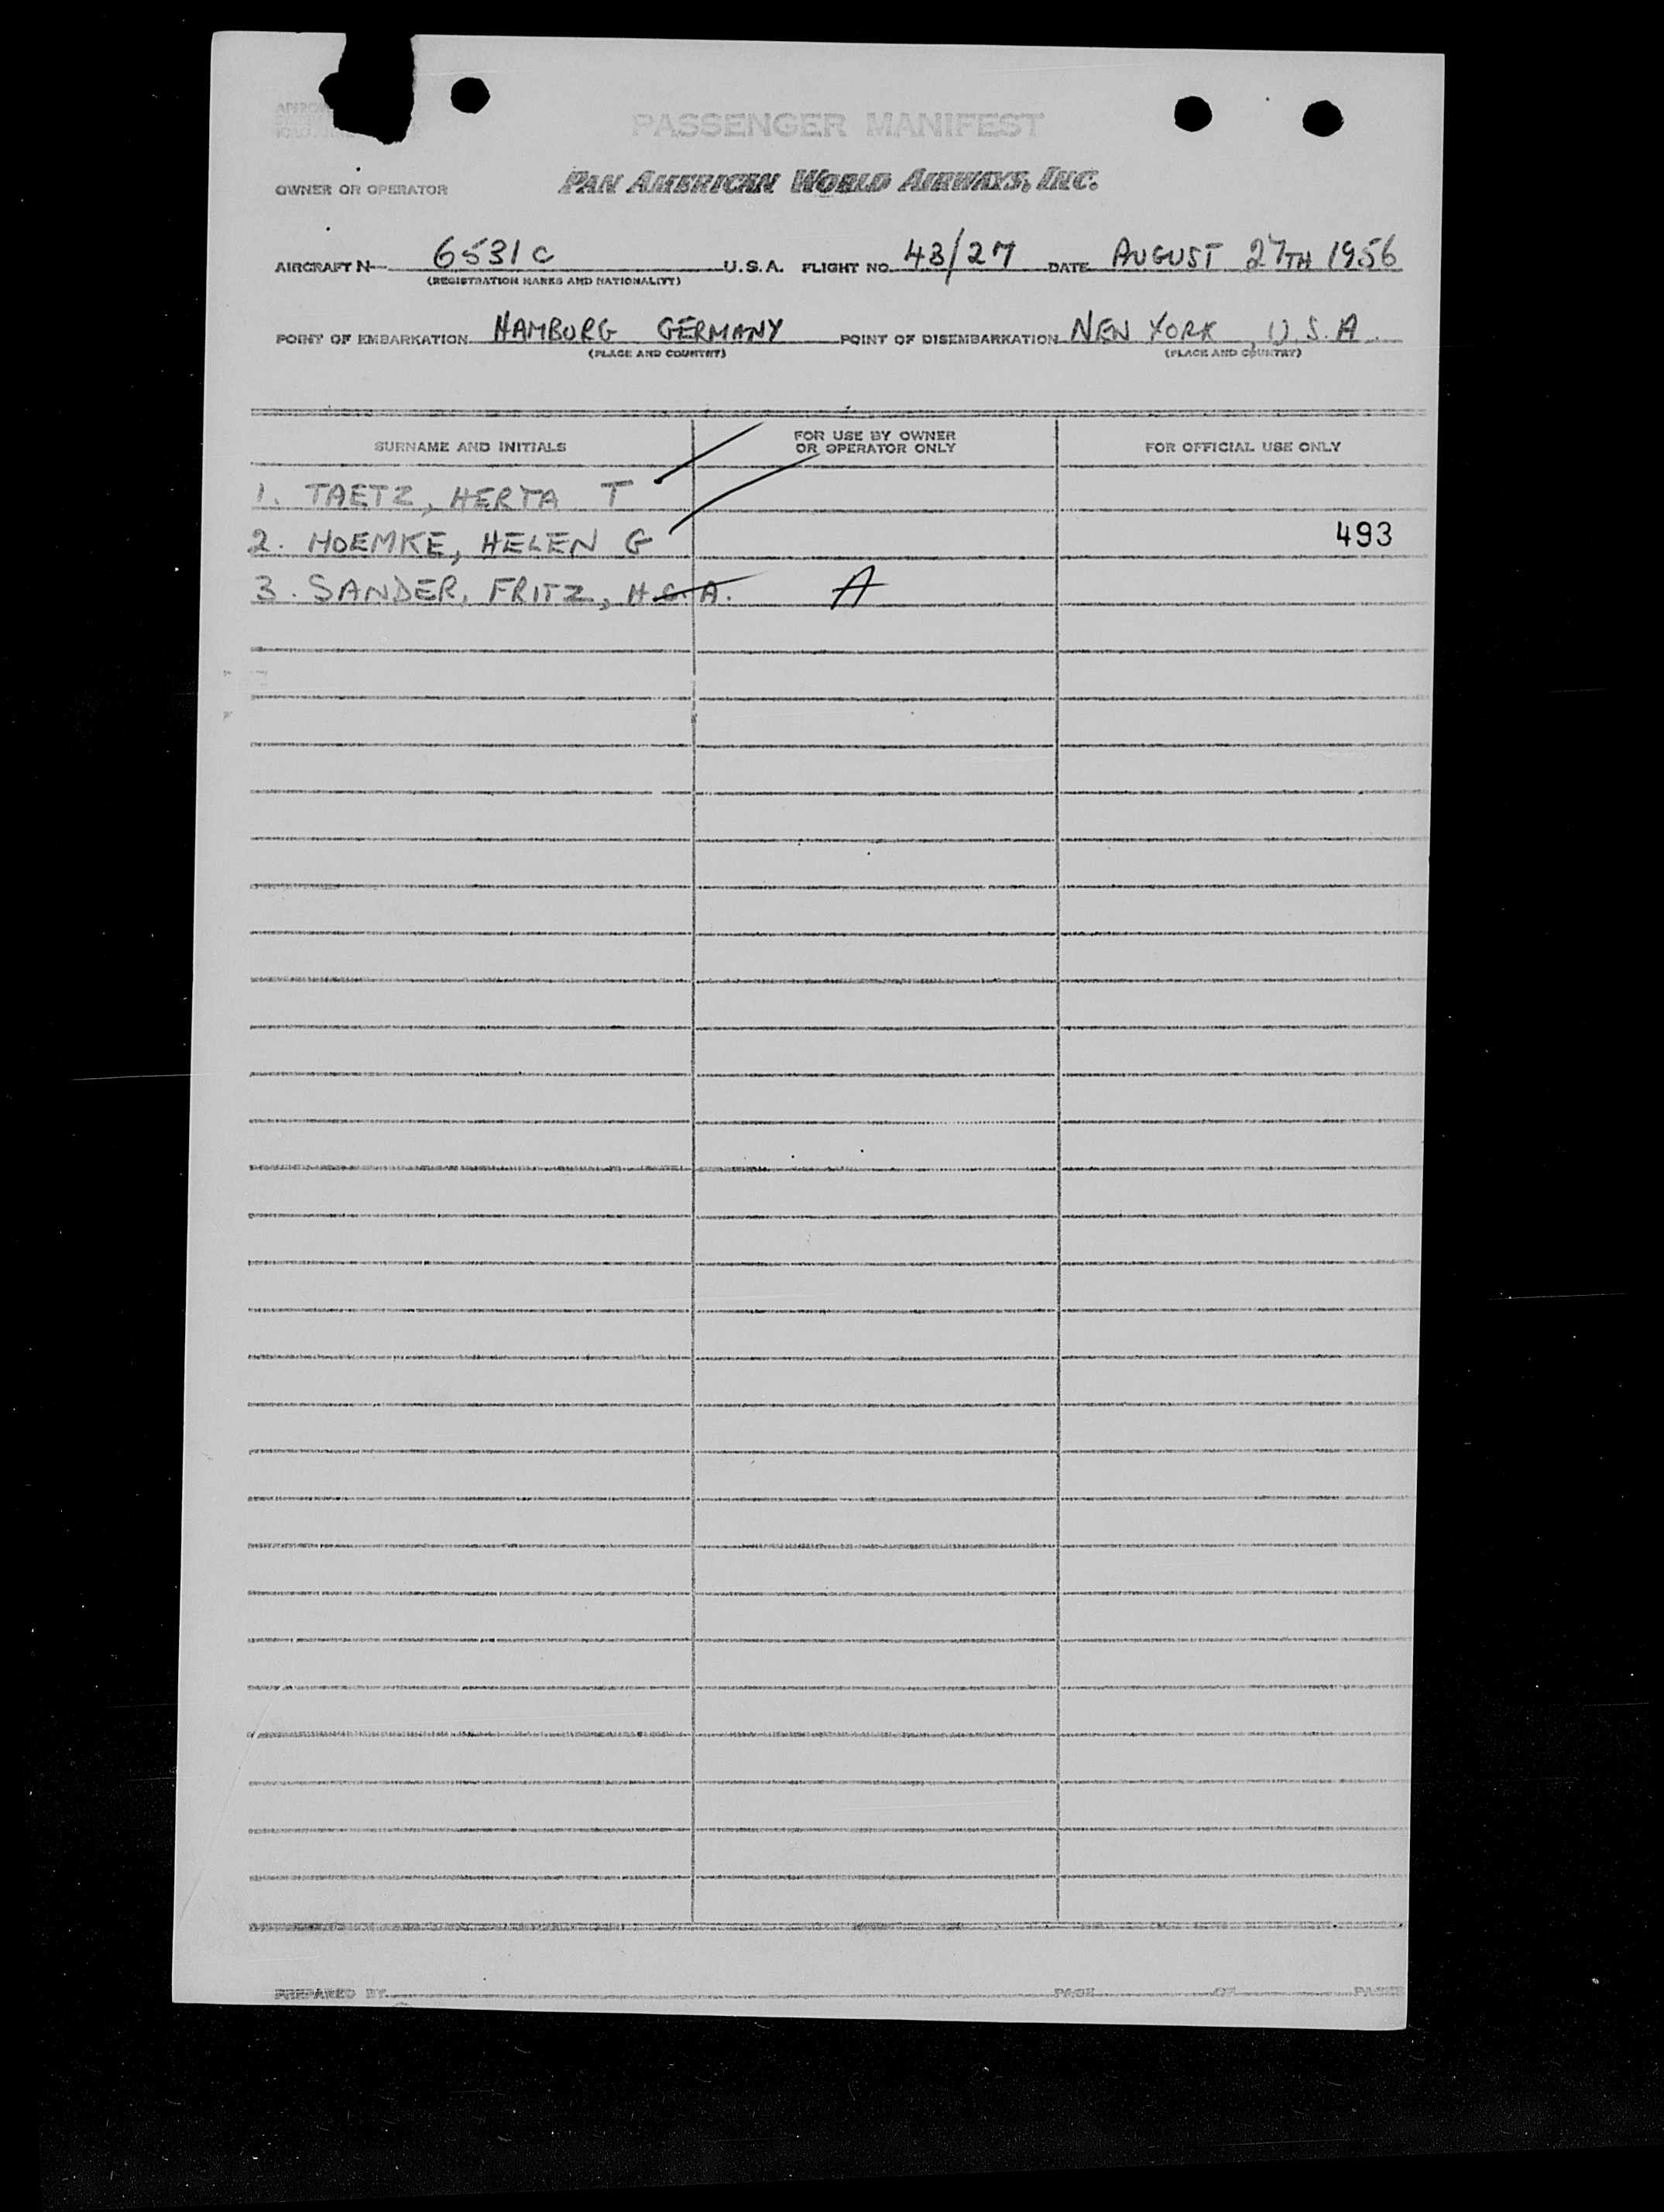 PASSENGER MANIFEST
OWNER OR OPERATOR PAN AMERICAN WORLD AIRWAYS, INC.
AIRCRAFT N 6531C U.S.A. FLIGHT NO. 43/27 DATE AUGUST 27TH 1956
(REGISTRATION MARKS AND NATIONALITY)
POINT OF EMBARKATION HAMBURG GERMANY POINT OF DISEMBARKATION NEW YORK, U.S.A.
(PLACE AND COUNTRY) (PLACE AND COUNTRY)
SURNAME AND INITIALS FOR USE BY OWNER OR OPERATOR ONLY FOR OFFICIAL USE ONLY
1. TAETZ, HERTA T
2. HOEMKE, HELEN G 493
3. SANDER, FRITZ, H.G.A. A
PREPARED BY PAGE OF PAGES